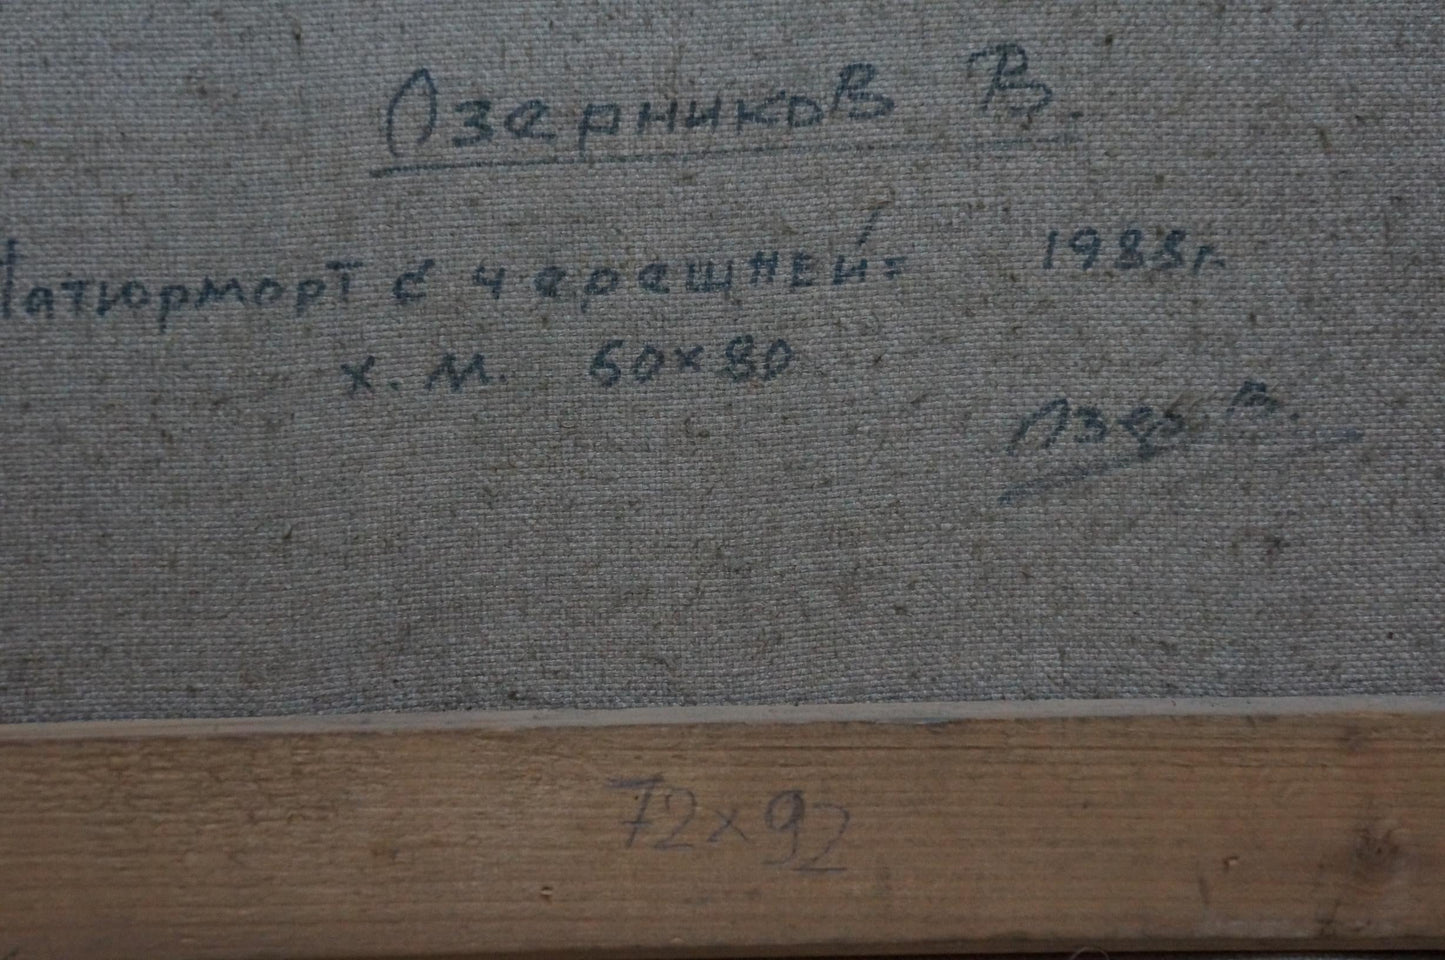 Озерников В.
Натюрморт с черешней: 1988г.
х. м. 60х80
Озер. В.
72х92